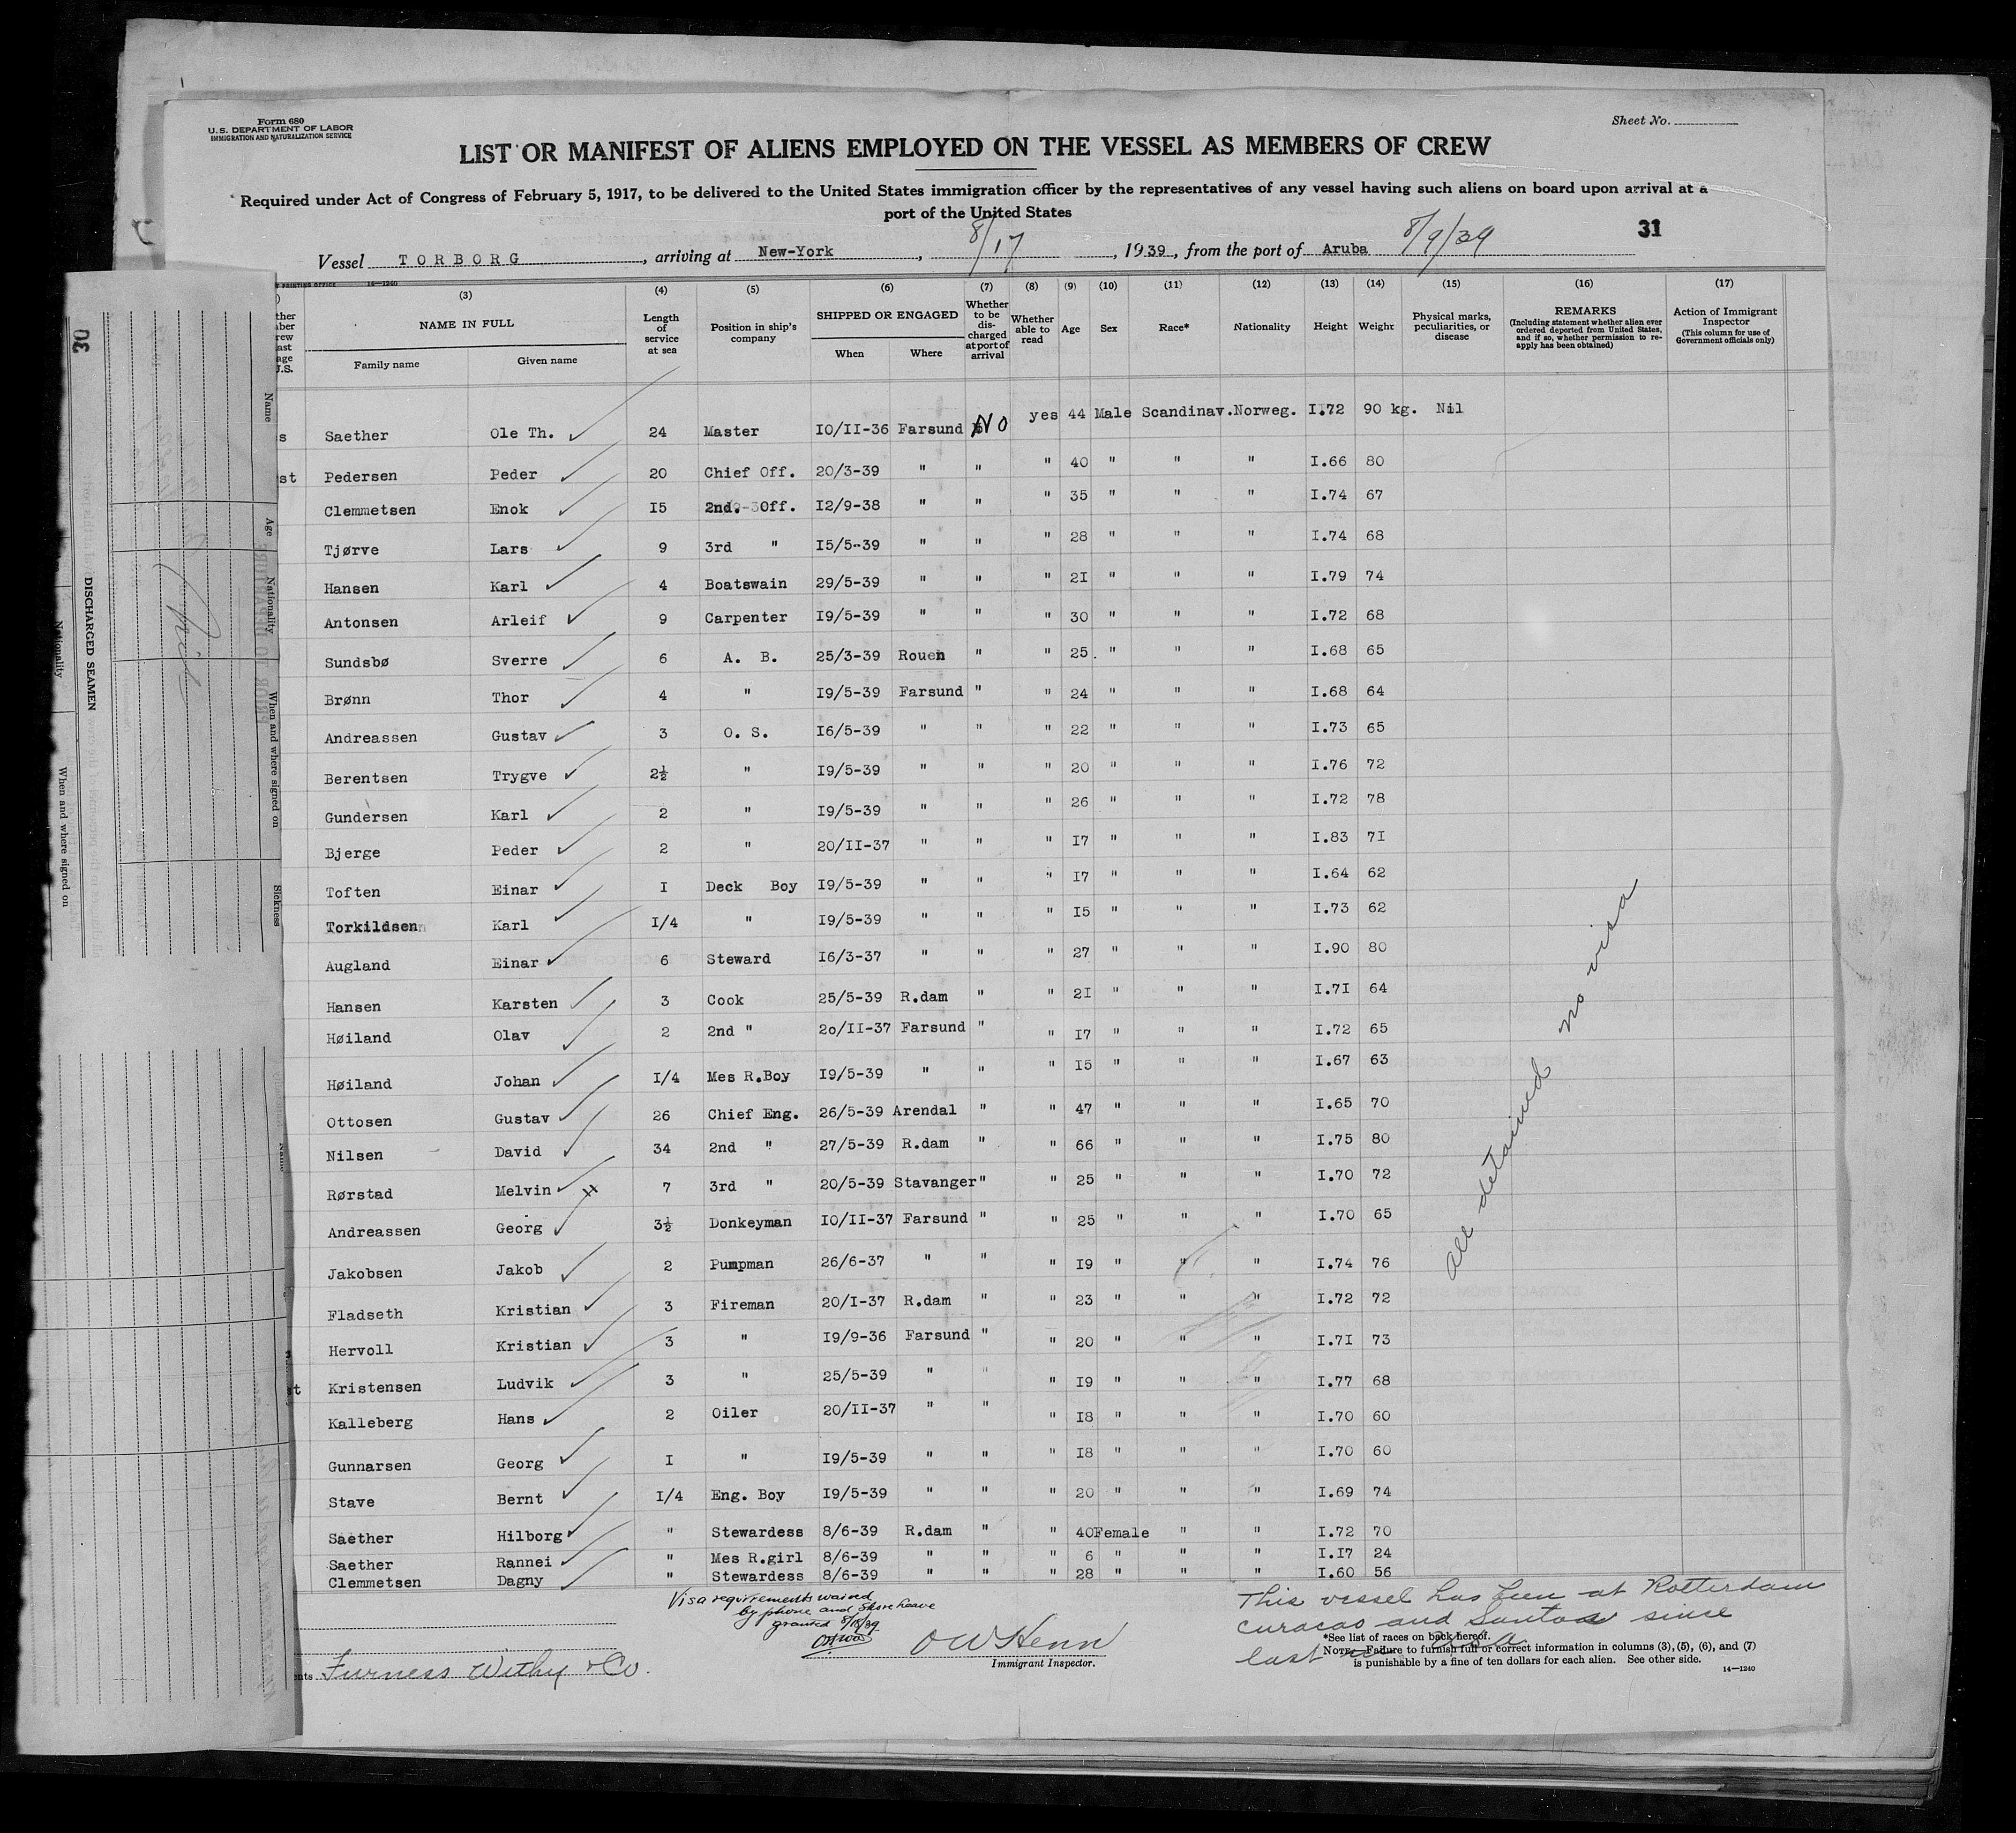 Form 680
U.S. DEPARTMENT OF LABOR
IMMIGRATION AND NATURALIZATION SERVICE
Sheet No.
LIST OR MANIFEST OF ALIENS EMPLOYED ON THE VESSEL AS MEMBERS OF CREW
Required under Act of Congress of February 5, 1917, to be delivered to the United States immigration officer by the representatives of any vessel having such aliens on board upon arrival at a
port of the United States
31
Vessel TORBORG, arriving at New-York, 8/17, 1939, from the port of Aruba 8/9/39
PRINTING OFFICE 14—1240
(3) (4) (5) (6) (7) (8) (9) (10) (11) (12) (13) (14) (15) (16) (17)
NAME IN FULL Family name Given name
Length of service at sea
Position in ship's company
SHIPPED OR ENGAGED When Where
Whether to be discharged at port of arrival
Whether able to read
Age Sex Race* Nationality Height Weight
Physical marks, peculiarities, or disease
REMARKS (Including statement whether alien ever ordered deported from United States, and if so, whether permission to reapply has been obtained)
Action of Immigrant Inspector (This column for use of Government officials only)
Saether Ole Th. 24 Master I0/II-36 Farsund NO yes 44 Male Scandinav. Norweg. I.72 90 kg. Nil
Pedersen Peder 20 Chief Off. 20/3-39 " " " 40 " " " I.66 80
Clemmetsen Enok I5 2nd. Off. I2/9-38 " " " 35 " " " I.74 67
Tjørve Lars 9 3rd " I5/5-39 " " " 28 " " " I.74 68
Hansen Karl 4 Boatswain 29/5-39 " " " 2I " " " I.79 74
Antonsen Arleif 9 Carpenter I9/5-39 " " " 30 " " " I.72 68
Sundsbø Sverre 6 A. B. 25/3-39 Rouen " " 25. " " " I.68 65
Brønn Thor 4 " I9/5-39 Farsund " " 24 " " " I.68 64
Andreassen Gustav 3 O. S. I6/5-39 " " " 22 " " " I.73 65
Berentsen Trygve 2½ " I9/5-39 " " " 20 " " " I.76 72
Gundersen Karl 2 " I9/5-39 " " " 26 " " " I.72 78
Bjerge Peder 2 " 20/II-37 " " " I7 " " " I.83 7I
Toften Einar I Deck Boy I9/5-39 " " " I7 " " " I.64 62
Torkildsen Karl I/4 " I9/5-39 " " " I5 " " " I.73 62
Augland Einar 6 Steward I6/3-37 " " " 27 " " " I.90 80
Hansen Karsten 3 Cook 25/5-39 R.dam " " 2I " " " I.7I 64
Høiland Olav 2 2nd " 2o/II-37 Farsund " " I7 " " " I.72 65
Høiland Johan I/4 Mes R.Boy I9/5-39 " " " I5 " " " I.67 63
Ottosen Gustav 26 Chief Eng. 26/5-39 Arendal " " 47 " " " I.65 70
Nilsen David 34 2nd " 27/5-39 R.dam " " 66 " " " I.75 80
Rørstad Melvin 7 3rd " 20/5-39 Stavanger " " 25 " " " I.70 72
Andreassen Georg 3½ Donkeyman I0/II-37 Farsund " " 25 " " " I.70 65
Jakobsen Jakob 2 Pumpman 26/6-37 " " " I9 " " " I.74 76
Fladseth Kristian 3 Fireman 20/I-37 R.dam " " 23 " " " I.72 72
Hervoll Kristian 3 " I9/9-36 Farsund " " 20 " " " I.7I 73
Kristensen Ludvik 3 " 25/5-39 " " " I9 " " " I.77 68
Kalleberg Hans 2 Oiler 20/II-37 " " " I8 " " " I.70 60
Gunnarsen Georg I " I9/5-39 " " " I8 " " " I.70 60
Stave Bernt I/4 Eng. Boy I9/5-39 " " " 20 " " " I.69 74
Saether Hilborg " Stewardess 8/6-39 R.dam " " 40 Female " " I.72 70
Saether Rannei " Mes R.girl 8/6-39 " " " 6 " " " I.I7 24
Clemmetsen Dagny " Stewardess 8/6-39 " " " 28 " " " I.60 56
All detained no visa
Visa requirements waived
by phone and Shore Leave
granted 8/18/39
O W Henn
Immigrant Inspector.
This vessel has been at Rotterdam
Curacao and Santos since
last
*See list of races on back hereof.
NOTE.—Failure to furnish full or correct information in columns (3), (5), (6), and (7)
is punishable by a fine of ten dollars for each alien. See other side.
14—1240
Furness Withy & Co.
30
DISCHARGED SEAMEN
Nationality
When and where signed on
Name
Age
Nationality
When and where signed on
Sickness